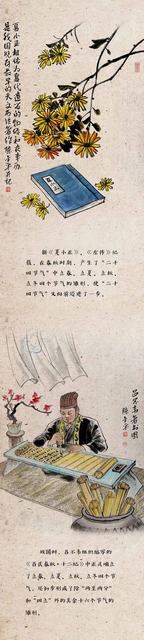 夏小正相传为夏代遗书的物候和农事历
是我国现存最早的天文历法著作
继《夏小正》、《左传》纪
载，在春秋时期，产生了“二十
四节气”中立春、立夏、立秋、
立冬四个节气的雏形，使“二十
四节气”又向前迈进了一步。
吕不韦著书图
战国时，吕不韦组织编写的
《吕氏春秋·十二纪》中正式确立
了立春、立夏、立秋、立冬四个节
气，还初步形成了除“两至两分”
和“四立”外的其余十六个节气的
雏形。